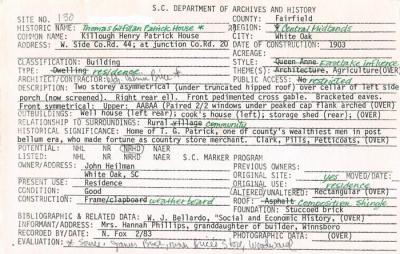 S.C. DEPARTMENT OF ARCHIVES AND HISTORY
SITE NO. 130 COUNTY: Fairfield
HISTORIC NAME: Thomas Gitfillan Patrick House * REGION: Central Midlands
COMMON NAME: Killough Henry Patrick House CITY: White Oak
ADDRESS: W. Side Co.Rd. 44; at junction Co.Rd. 20 DATE OF CONSTRUCTION: 1903
ACREAGE:
CLASSIFICATION: Building STYLE: Queen Anne Eastlake influence
TYPE: Dwelling residence THEME(S): Architecture, Agriculture(OVER)
ARCHITECT/CONTRACTOR: PUBLIC ACCESS: No restricted
DESCRIPTION: Two storey asymmetrical (under truncated hipped roof) over cellar of left side
porch (now screened). Right rear ell. Front pedimented cross gable. Bracketed eaves.
Front symmetrical: Upper: AABAA (Paired 2/2 windows under peaked cap flank arched (OVER)
OUTBUILDINGS: Well house (left rear); cook's house (left); storage shed (rear); (OVER)
RELATIONSHIP TO SURROUNDINGS: Rural village community
HISTORICAL SIGNIFICANCE: Home of T. G. Patrick, one of county's wealthiest men in post
bellum era, who made fortune as country store merchant. Clark, Pills, Petticoats, (OVER)
POTENTIAL: NHL NC (NRHD) NAER
LISTED: NHL NRHD NAER S.C. MARKER PROGRAM
OWNER/ADDRESS: John Heilman PREVIOUS OWNERS:
White Oak, SC ORIGINAL SITE: yes MOVED/DATE:
PRESENT USE: Residence ORIGINAL USE: residence
CONDITION: Good (ALTERED)/UNALTERED: Rectangular (OVER)
CONSTRUCTION: Frame/clapboard weatherboard ROOF: Asphalt composition shingle
FOUNDATION: Stuccoed brick
BIBLIOGRAPHIC & RELATED DATA: W. J. Bellardo, "Social and Economic History, (OVER)
INFORMANT/ADDRESS: Mrs. Hannah Phillips, granddaughter of builder, Winnsboro
RECORDED BY/DATE: N. Fox 2/83 PHOTOGRAPHIC DATA: (OVER)
EVALUATION: